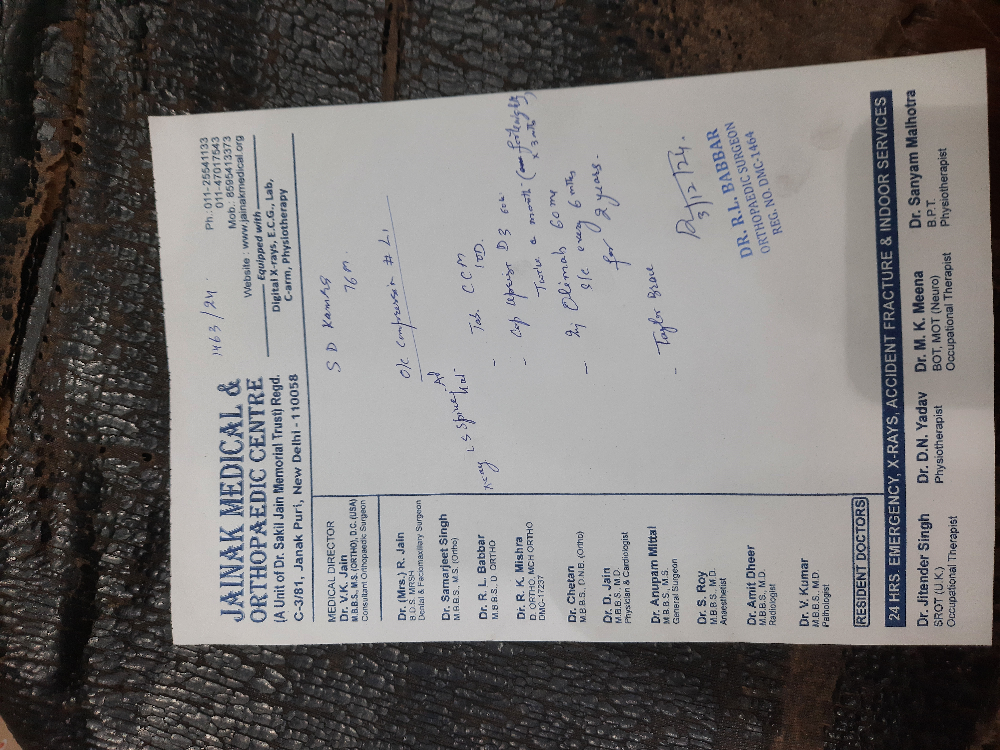 JAINAK MEDICAL &
ORTHOPAEDIC CENTRE
(A Unit of Dr. Sakil Jain Memorial Trust) Regd.
C-3/81, Janak Puri, New Delhi - 110058
1463/24
Ph.: 011-25541133
011-47017543
Mob.: 8595413373
Website : www.jainakmedical.org
Equipped with
Digital X-rays, E.C.G., Lab,
C-arm, Physiotherapy
MEDICAL DIRECTOR
Dr. V.K. Jain
M.B.B.S., M.S. (ORTHO), D.C. (USA)
Consultant Orthopaedic Surgeon
Dr. (Mrs.) R. Jain
B.D.S. MRSH
Dental & Faciomaxillary Surgeon
Dr. Samarjeet Singh
M.B.B.S., M.S. (Ortho)
Dr. R. L. Babbar
M.B.B.S., D ORTHO
Dr. R. K. Mishra
D. ORTHO, MCH ORTHO
DMC-17237
Dr. Chetan
M.B.B.S., D.N.B. (Ortho)
Dr. D. Jain
M.B.B.S., M.D.
Physician & Cardiologist
Dr. Anupam Mittal
M.B.B.S., M.S.
General Surgeon
Dr. S. Roy
M.B.B.S., M.D.
Anaesthetist
Dr. Amit Dheer
M.B.B.S., M.D.
Radiologist
Dr. V. Kumar
M.B.B.S., M.D.
Pathologist
RESIDENT DOCTORS
S D
76 M
O/c Compression # L1
Xray LS Spine AP
Lat
- Tab. CCM
1 OD.
- Cap Uprise D3 60k
Twice a month (fortnightly
x 3 mths)
- Inj Olimab 60 mg
S/c every 6 mths
for 2 years.
- Taylor Brace
3/12/24.
DR. R.L. BABBAR
ORTHOPAEDIC SURGEON
REG. NO. DMC-1464
24 HRS. EMERGENCY, X-RAYS, ACCIDENT FRACTURE & INDOOR SERVICES
Dr. Jitender Singh
SROT (U.K.)
Occupational Therapist
Dr. D.N. Yadav
Physiotherapist
Dr. M. K. Meena
BOT, MOT (Neuro)
Occupational Therapist
Dr. Sanyam Malhotra
B.P.T.
Physiotherapist